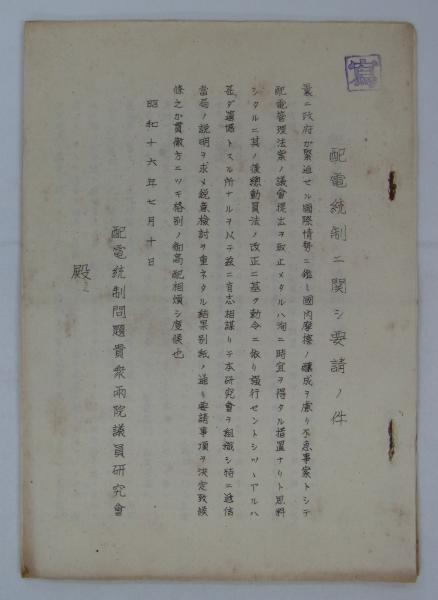 寫
配電統制ニ関シ要請ノ件
曩ニ政府が緊迫セル國際情勢ニ鑑ミ國内摩擦ノ醸成ヲ慮リ不急事案トシテ
配電管理法案ノ議會提出ヲ取止メタルハ洵ニ時宜ヲ得タル措置ナリト思料
シタルニ其ノ後總動員法ノ改正ニ基ク勅令ニ依リ強行セントシツヽアルハ
甚ダ遺憾トスル所ナルヲ以テ茲ニ有志相謀リテ本研究會ヲ組織シ特ニ逓信
當局ノ説明ヲ求メ鋭意檢討ヲ重ネタル結果別紙ノ通リ要請事項ヲ決定致候
條之が貫徹方ニツキ格別ノ御高配相煩シ度候也
昭和十六年七月十日
配電統制問題貴衆兩院議員研究會
殿